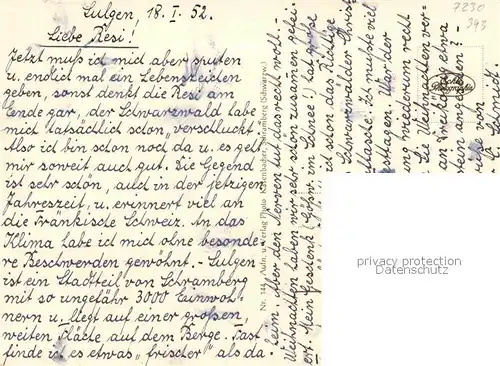 Sulgen, 18. I. 52.
Liebe Resi!
Jetzt muß ich mich aber sputen
u. endlich mal ein Lebenszeichen
geben, sonst denkt die Resi am
Ende gar, der Schwarzwald habe
mich tatsächlich schon "verschluckt".
Also ich bin schon noch da u. es geht
mir soweit auch gut. Die Gegend
ist sehr schön, auch in der jetzigen
Jahreszeit, u. erinnert viel an
die Fränkische Schweiz. An das
Klima habe ich mich ohne besonde
re Beschwerden gewöhnt. - Sulgen
ist ein Stadtteil von Schramberg
mit so ungefähr 3000 Einwoh-
nern u. liegt auf einer großen,
weiten Fläche auf dem Berge. Fast
finde ich es etwas "frischer" als da-
heim. Aber den Lernen tut das recht wohl. -
Weihnachten haben wir sehr schön zusammen gefei-
ert. Mein Geschenk (Göhni, im Schnee!) habe große
ist schon das Richtige
Schwarzwälder Christ
Tasche. Ist mußte viel
Festtagen. War der
wiederum recht
Sie Weihnachten ver-
an Dreikönig etwa
stein angefangen? -
eise von
Nr. 144 Aufn. u. Verlag Photo Schramberg (Schwarzw.)
Echte
Photographie
7230
393
privacy protection
Datenschutz